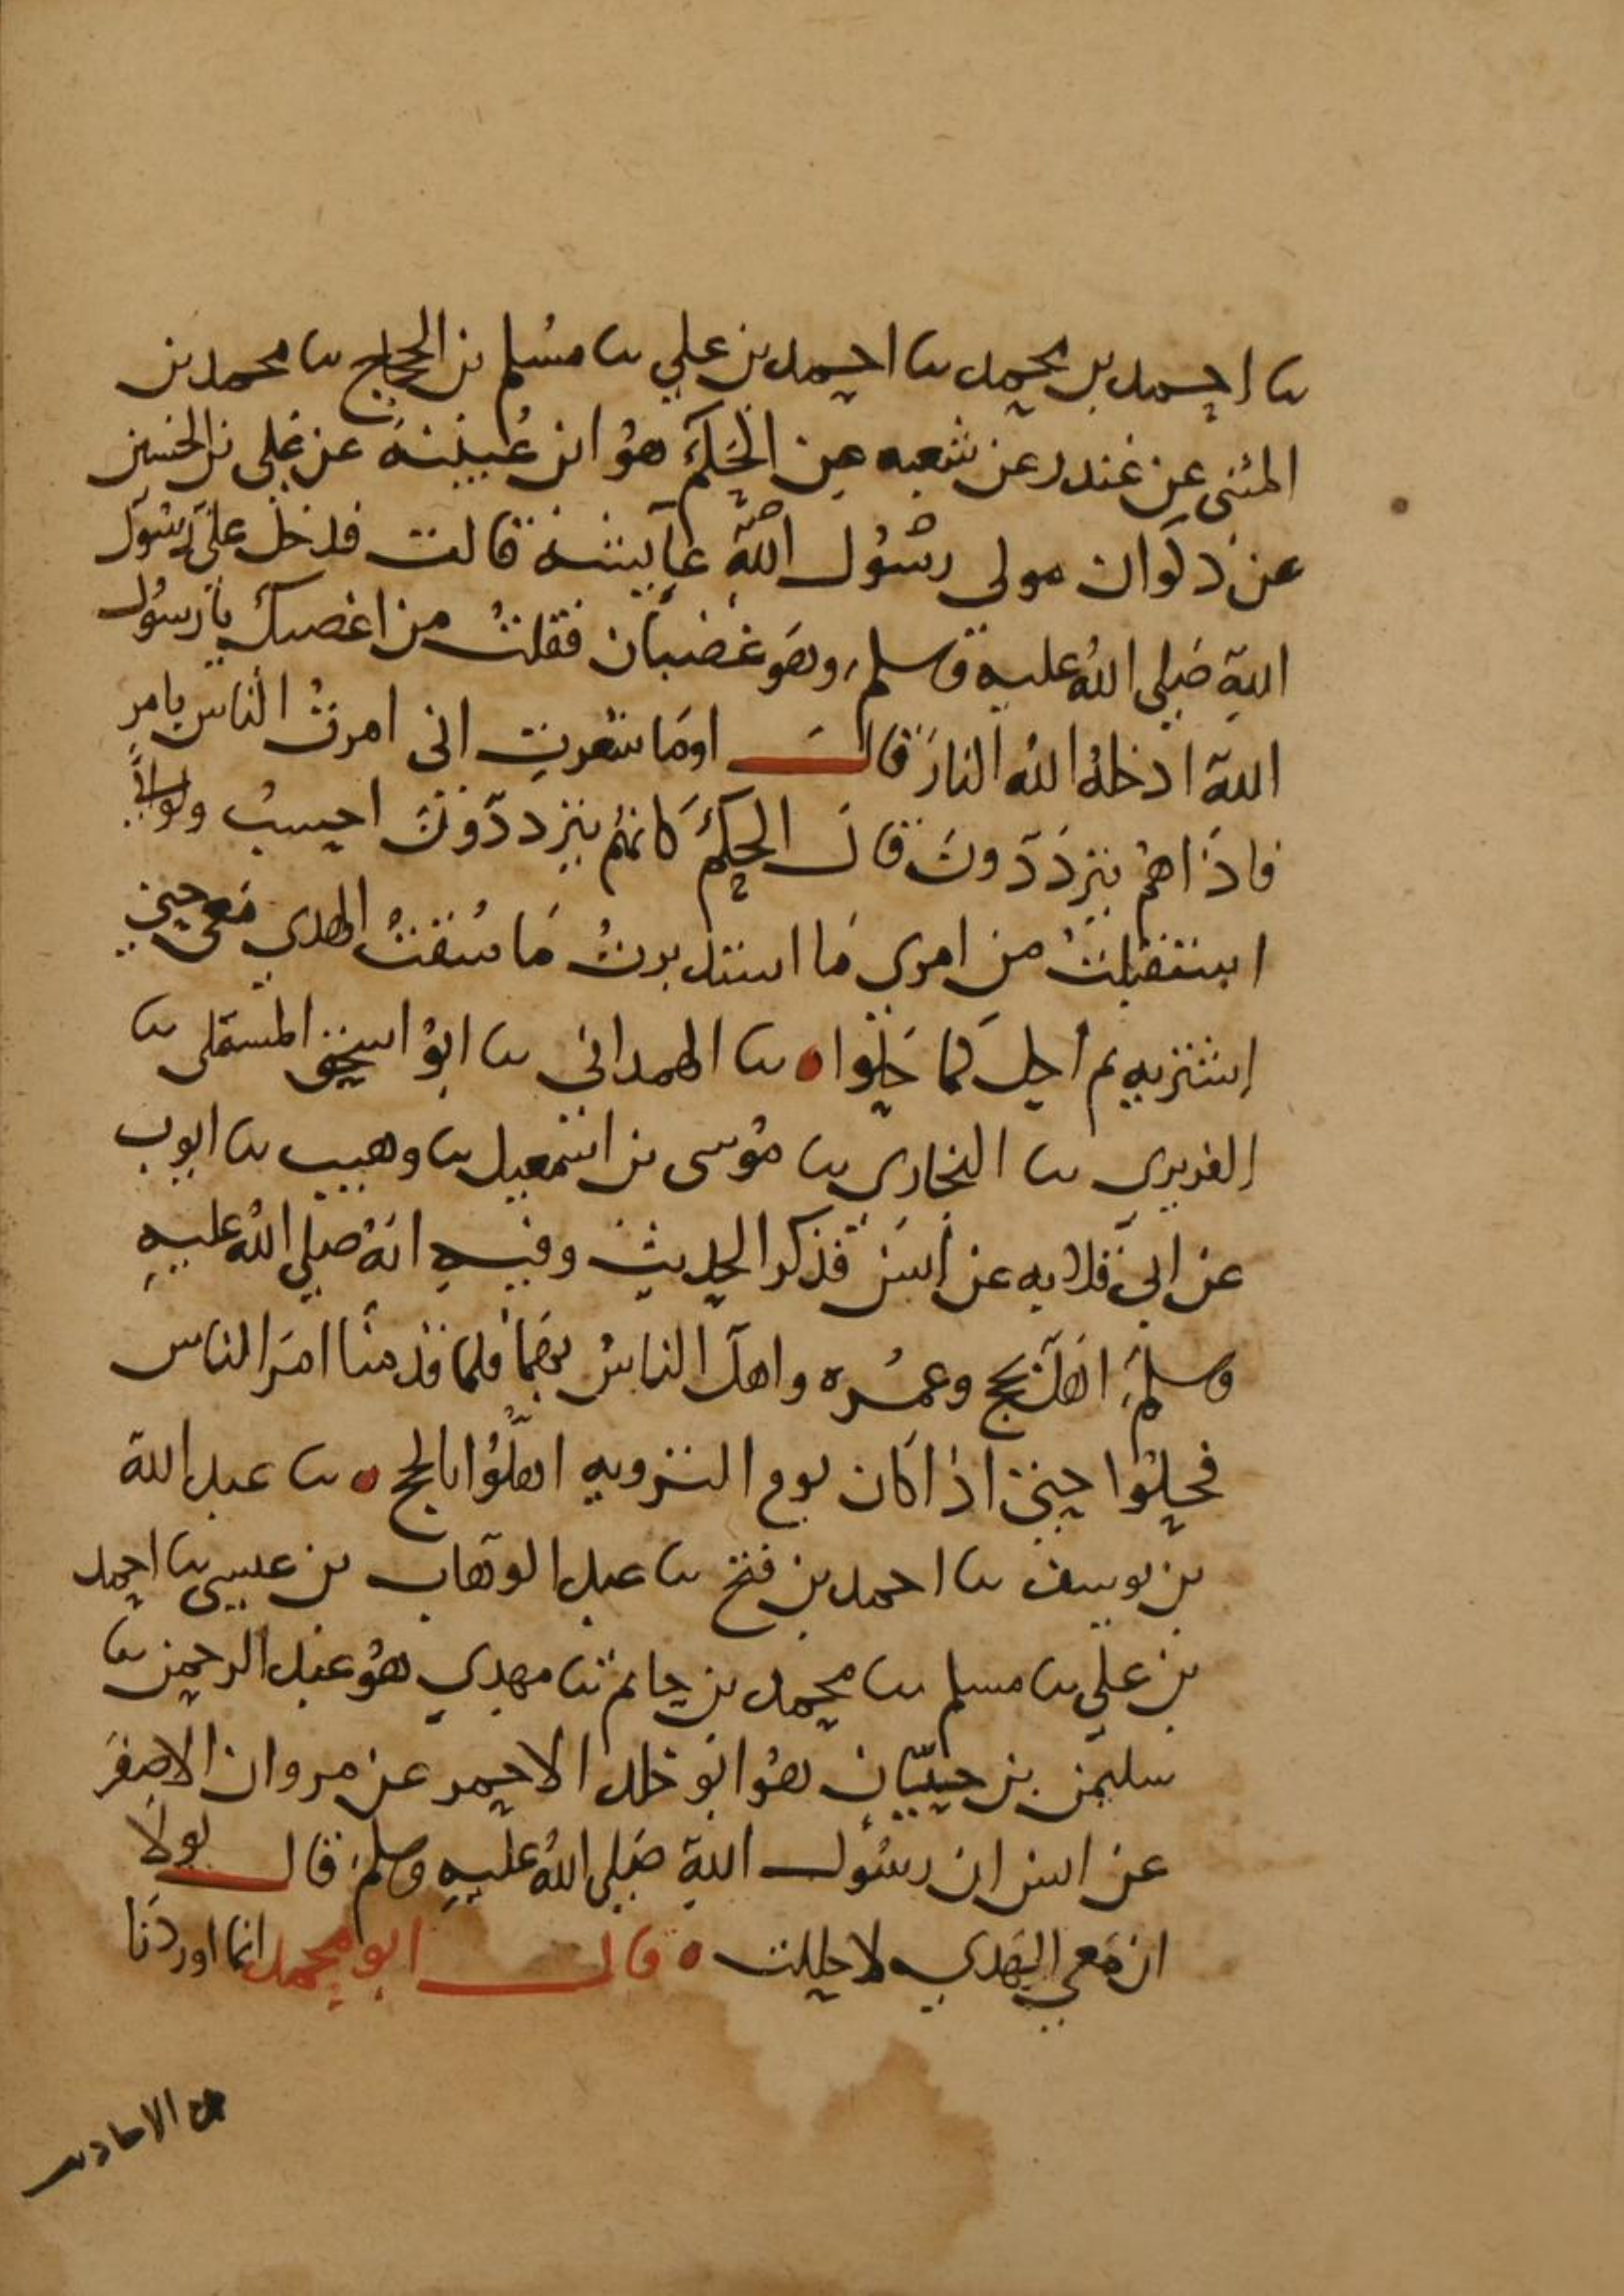 ثنا احمد بن محمد ثنا احمد بن علي ثنا مسلم بن الحجاج ثنا محمد بن
المثنى عن غندر عن شعبه عن الحكم هو ابن عيينة عن علي بن الحسين
عن ذكوان مولى رسول الله عايشة قالت فدخل علي رسول
الله صلى الله عليه وسلم وهو غضبان فقلت من اغضبك يا رسول
الله ادخله الله النار قال اوما شعرت اني امرت الناس بامر
فاذا هم يترددون قال الحكم كانهم يترددون احسب ولو اني
استقبلت من امري ما استدبرت ما سقت الهدي معي حتى
اشتريه ثم احل كما حلوا ثنا الهمداني ثنا ابو اسحق المستملي ثنا
الفربري ثنا البخاري ثنا موسى بن اسمعيل ثنا وهيب ثنا ايوب
عن ابي قلابه عن انس فذكر الحديث وفيه انه صلى الله عليه
وسلم اهل بحج وعمره واهل الناس بهما فلما قدمنا امر الناس
فحلوا حتى اذا كان يوم الترويه اهلوا بالحج ثنا عبد الله
بن يوسف ثنا احمد بن فتح ثنا عبد الوهاب بن عيسى ثنا احمد
بن علي ثنا مسلم ثنا محمد بن حاتم ثنا مهدي هو عبد الرحمن ثنا
سليمن بن حيان هو ابو خالد الاحمر عن مروان الاصفر
عن انس ان رسول الله صلى الله عليه وسلم قال لولا
ان معي الهدي لاحللت قال ابو محمد انما اوردنا
من الاحاديث